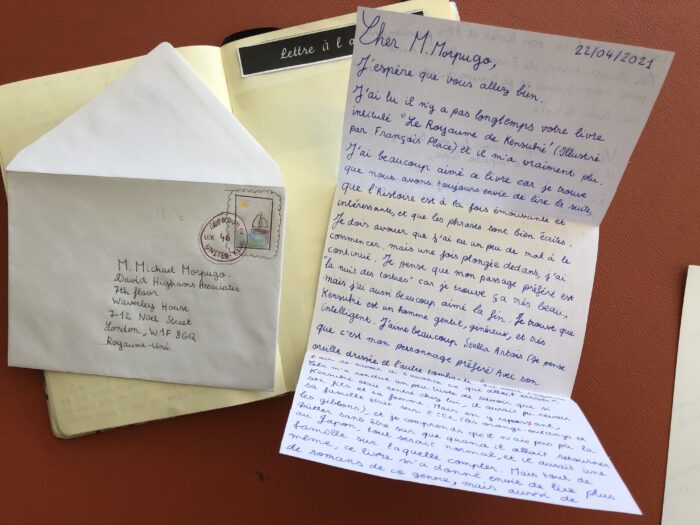 Lettre à l'a
Cher M. Morpugo,
22/04/2021
J'espère que vous allez bien.
J'ai lu il n'y a pas longtemps votre livre
intitulé "Le Royaume de Kensuké" (Illustré
par François Place) et il m'a vraiment plu.
J'ai beaucoup aimé ce livre car je trouve
que nous avons toujours envie de lire la suite
que l'histoire est à la fois émouvante et
intéressante, et que les phrases sont bien écrites.
Je dois avouer que j'ai eu un peu de mal à le
commencer, mais une fois plongée dedans, j'ai
continué. Je pense que mon passage préféré est
"la nuit des tortues" car je trouve ça très beau,
mais j'ai aussi beaucoup aimé la fin. Je trouve que
Kensuké est un homme gentil, généreux, et très
intelligent. J'aime beaucoup Stella Artois (je pense
que c'est mon personnage préféré) Avec son
oreille dressée et l'autre tombante
Kensuké
son fils et sa femme. Mais en y repensant,
sa famille était sur l'île (les orangs-outangs et
les gibbons), et je comprends qu'il n'aie pas pu la
quitter sans être sur que quand il allait retourner
au Japon, tout serait normal, et il aurait une
famille sur laquelle compter. Mais tout de
même, ce livre m'a donné envie de lire plus
de romans de ce genre, mais aussi de
U.K 46
UNITED
M. Michael Morpugo
David Highams Associates
7th floor
Waverley House
7-12 Noel Street
London, W1F 8GQ
Royaume-Uni